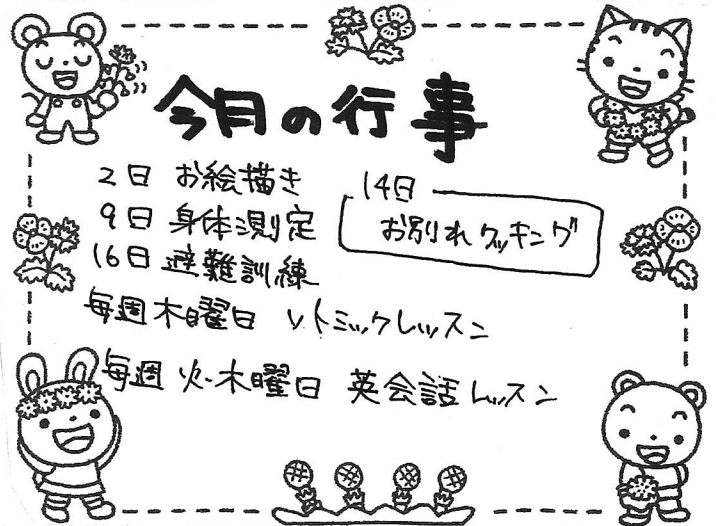 今月の行事
2日 お絵描き
9日 身体測定
16日 避難訓練
14日
お別れクッキング
毎週木曜日 リトミックレッスン
毎週 火・木曜日 英会話レッスン